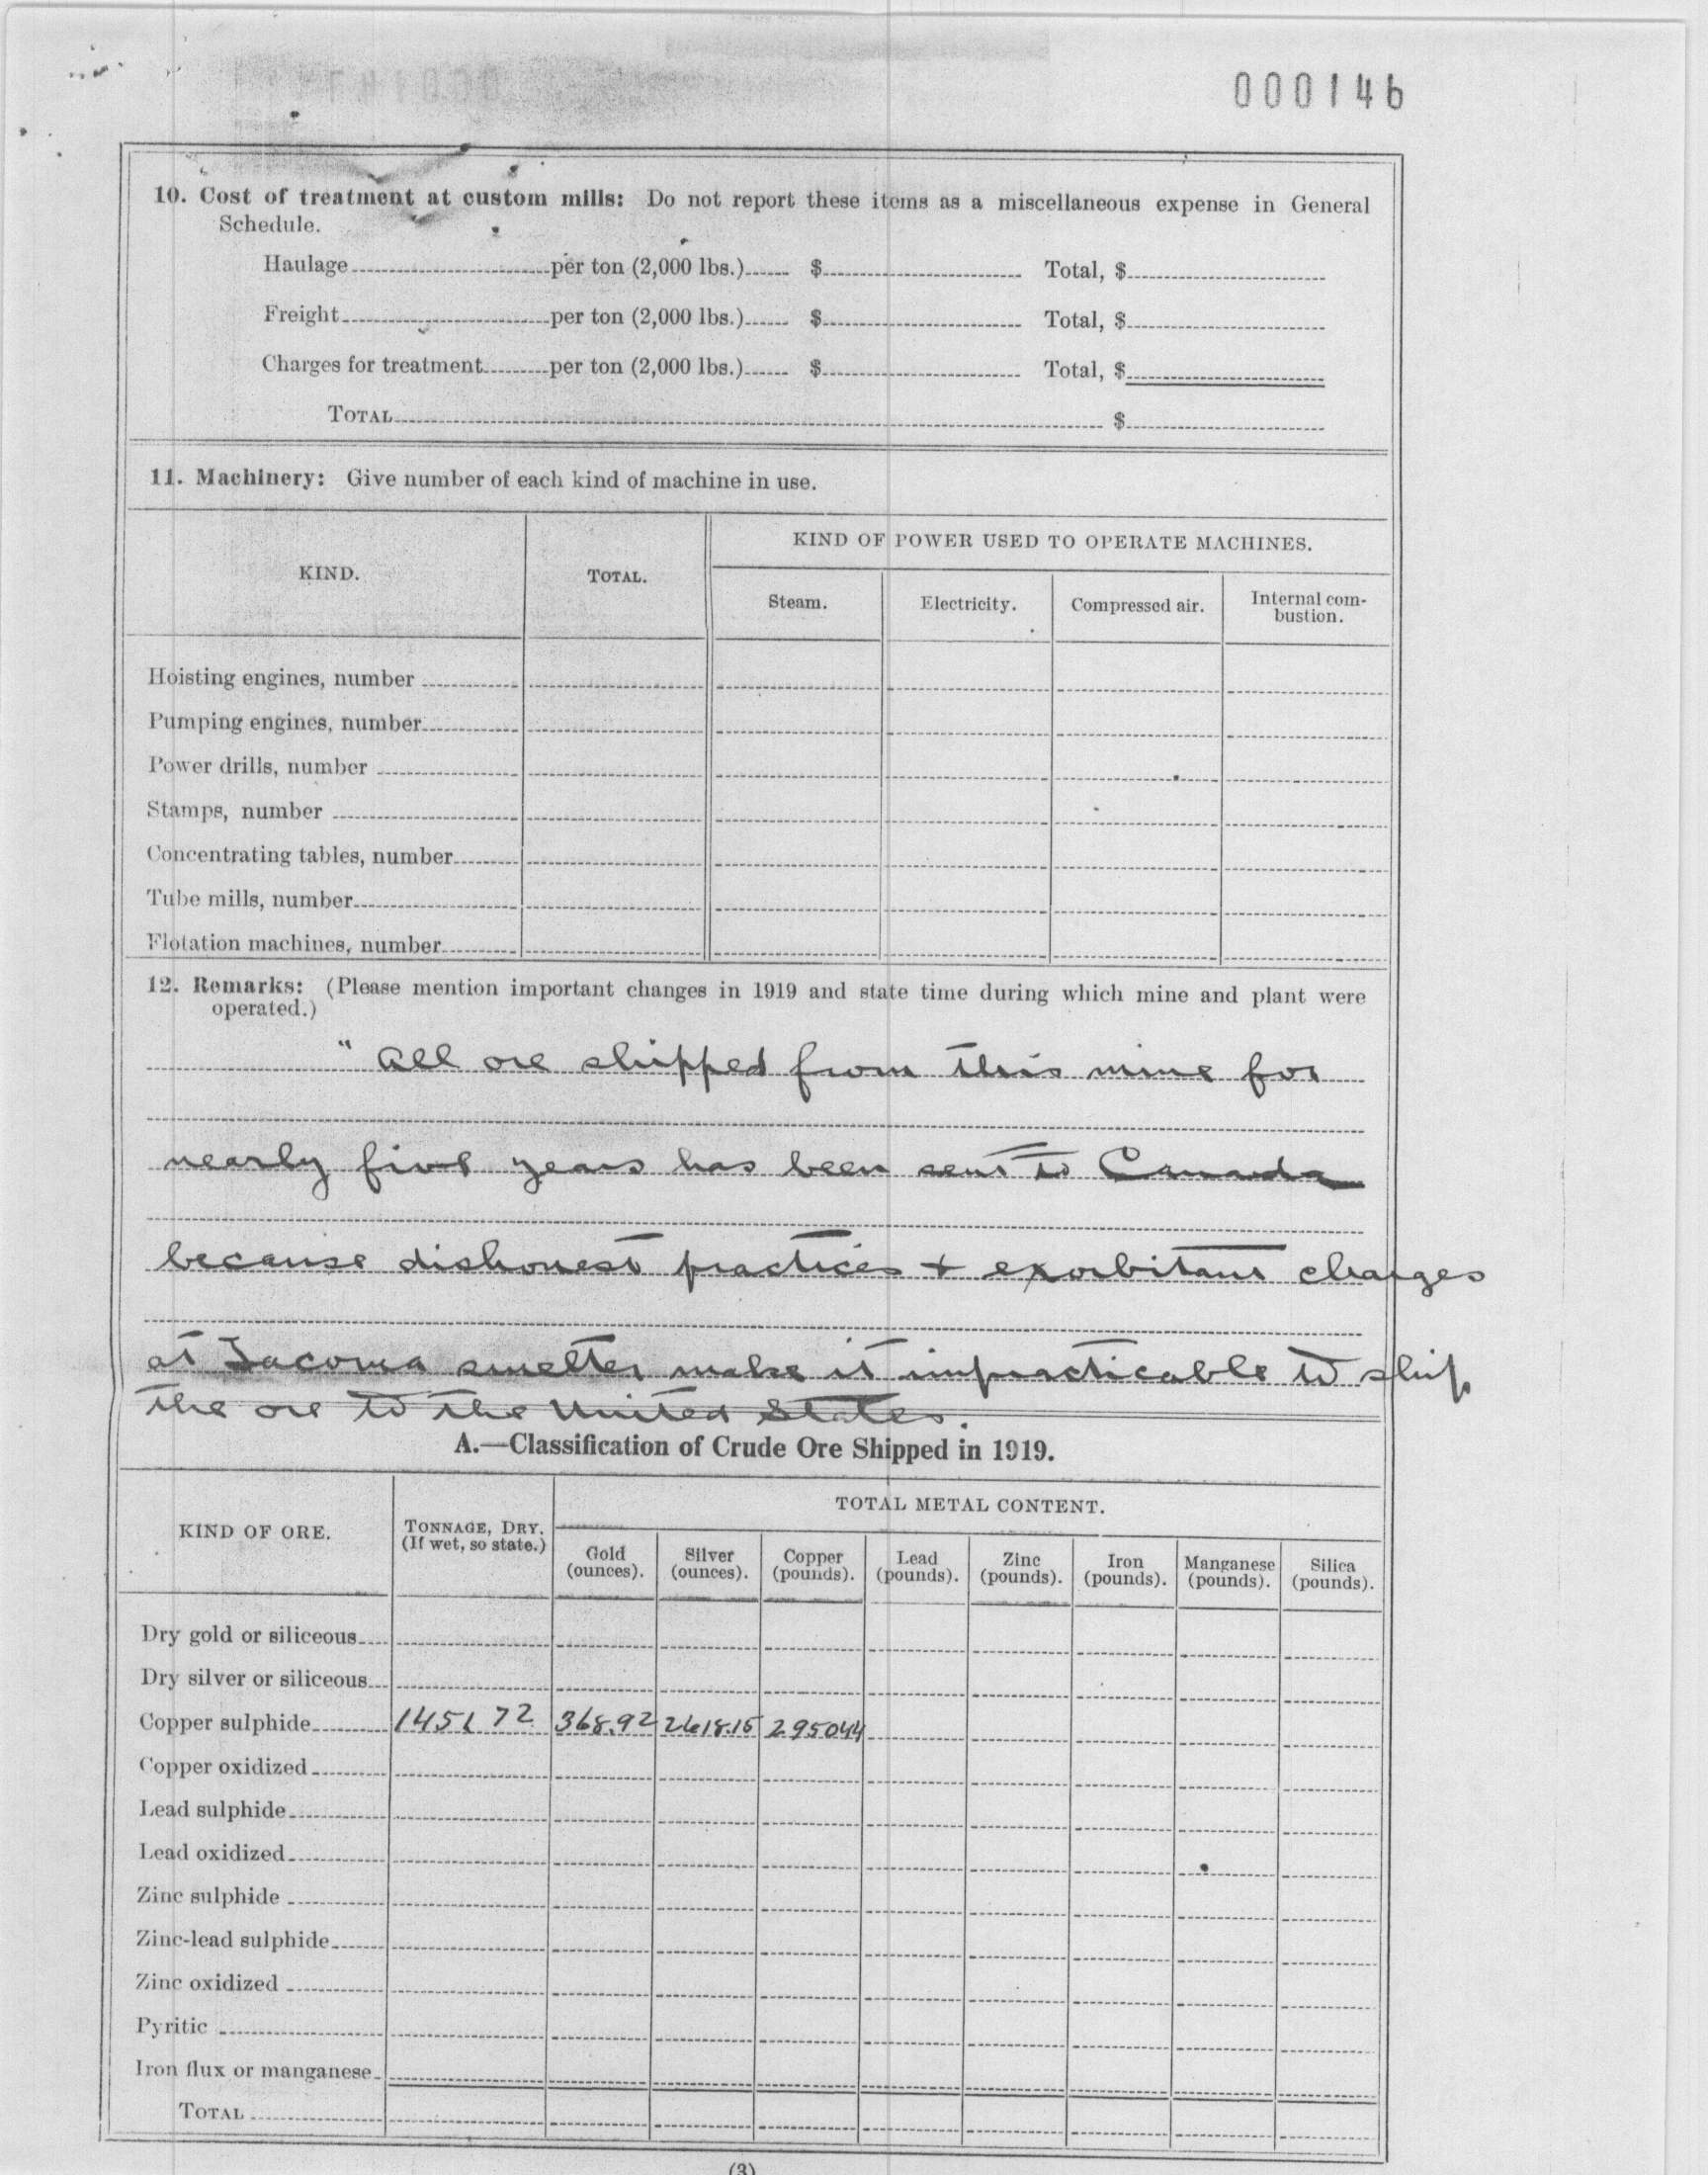 000146
10. Cost of treatment at custom mills: Do not report these items as a miscellaneous expense in General
Schedule.
Haulage per ton (2,000 lbs.) $ Total, $
Freight per ton (2,000 lbs.) $ Total, $
Charges for treatment per ton (2,000 lbs.) $ Total, $
TOTAL $
11. Machinery: Give number of each kind of machine in use.
KIND OF POWER USED TO OPERATE MACHINES.
KIND. TOTAL.
Steam. Electricity. Compressed air. Internal com-
bustion.
Hoisting engines, number
Pumping engines, number
Power drills, number
Stamps, number
Concentrating tables, number
Tube mills, number
Flotation machines, number
12. Remarks: (Please mention important changes in 1919 and state time during which mine and plant were
operated.)
" All ore shipped from this mine for
nearly five years has been sent to Canada
because dishonest practices + exorbitant charges
at Tacoma smelter make it impracticable to ship
the ore to the United States.
A.—Classification of Crude Ore Shipped in 1919.
TOTAL METAL CONTENT.
KIND OF ORE. TONNAGE, DRY.
(If wet, so state.)
Gold Silver Copper Lead Zinc Iron Manganese Silica
(ounces). (ounces). (pounds). (pounds). (pounds). (pounds). (pounds). (pounds).
Dry gold or siliceous
Dry silver or siliceous
Copper sulphide 1451 72 368.92 2618.15 295044
Copper oxidized
Lead sulphide
Lead oxidized
Zinc sulphide
Zinc-lead sulphide
Zinc oxidized
Pyritic
Iron flux or manganese
TOTAL
(3)